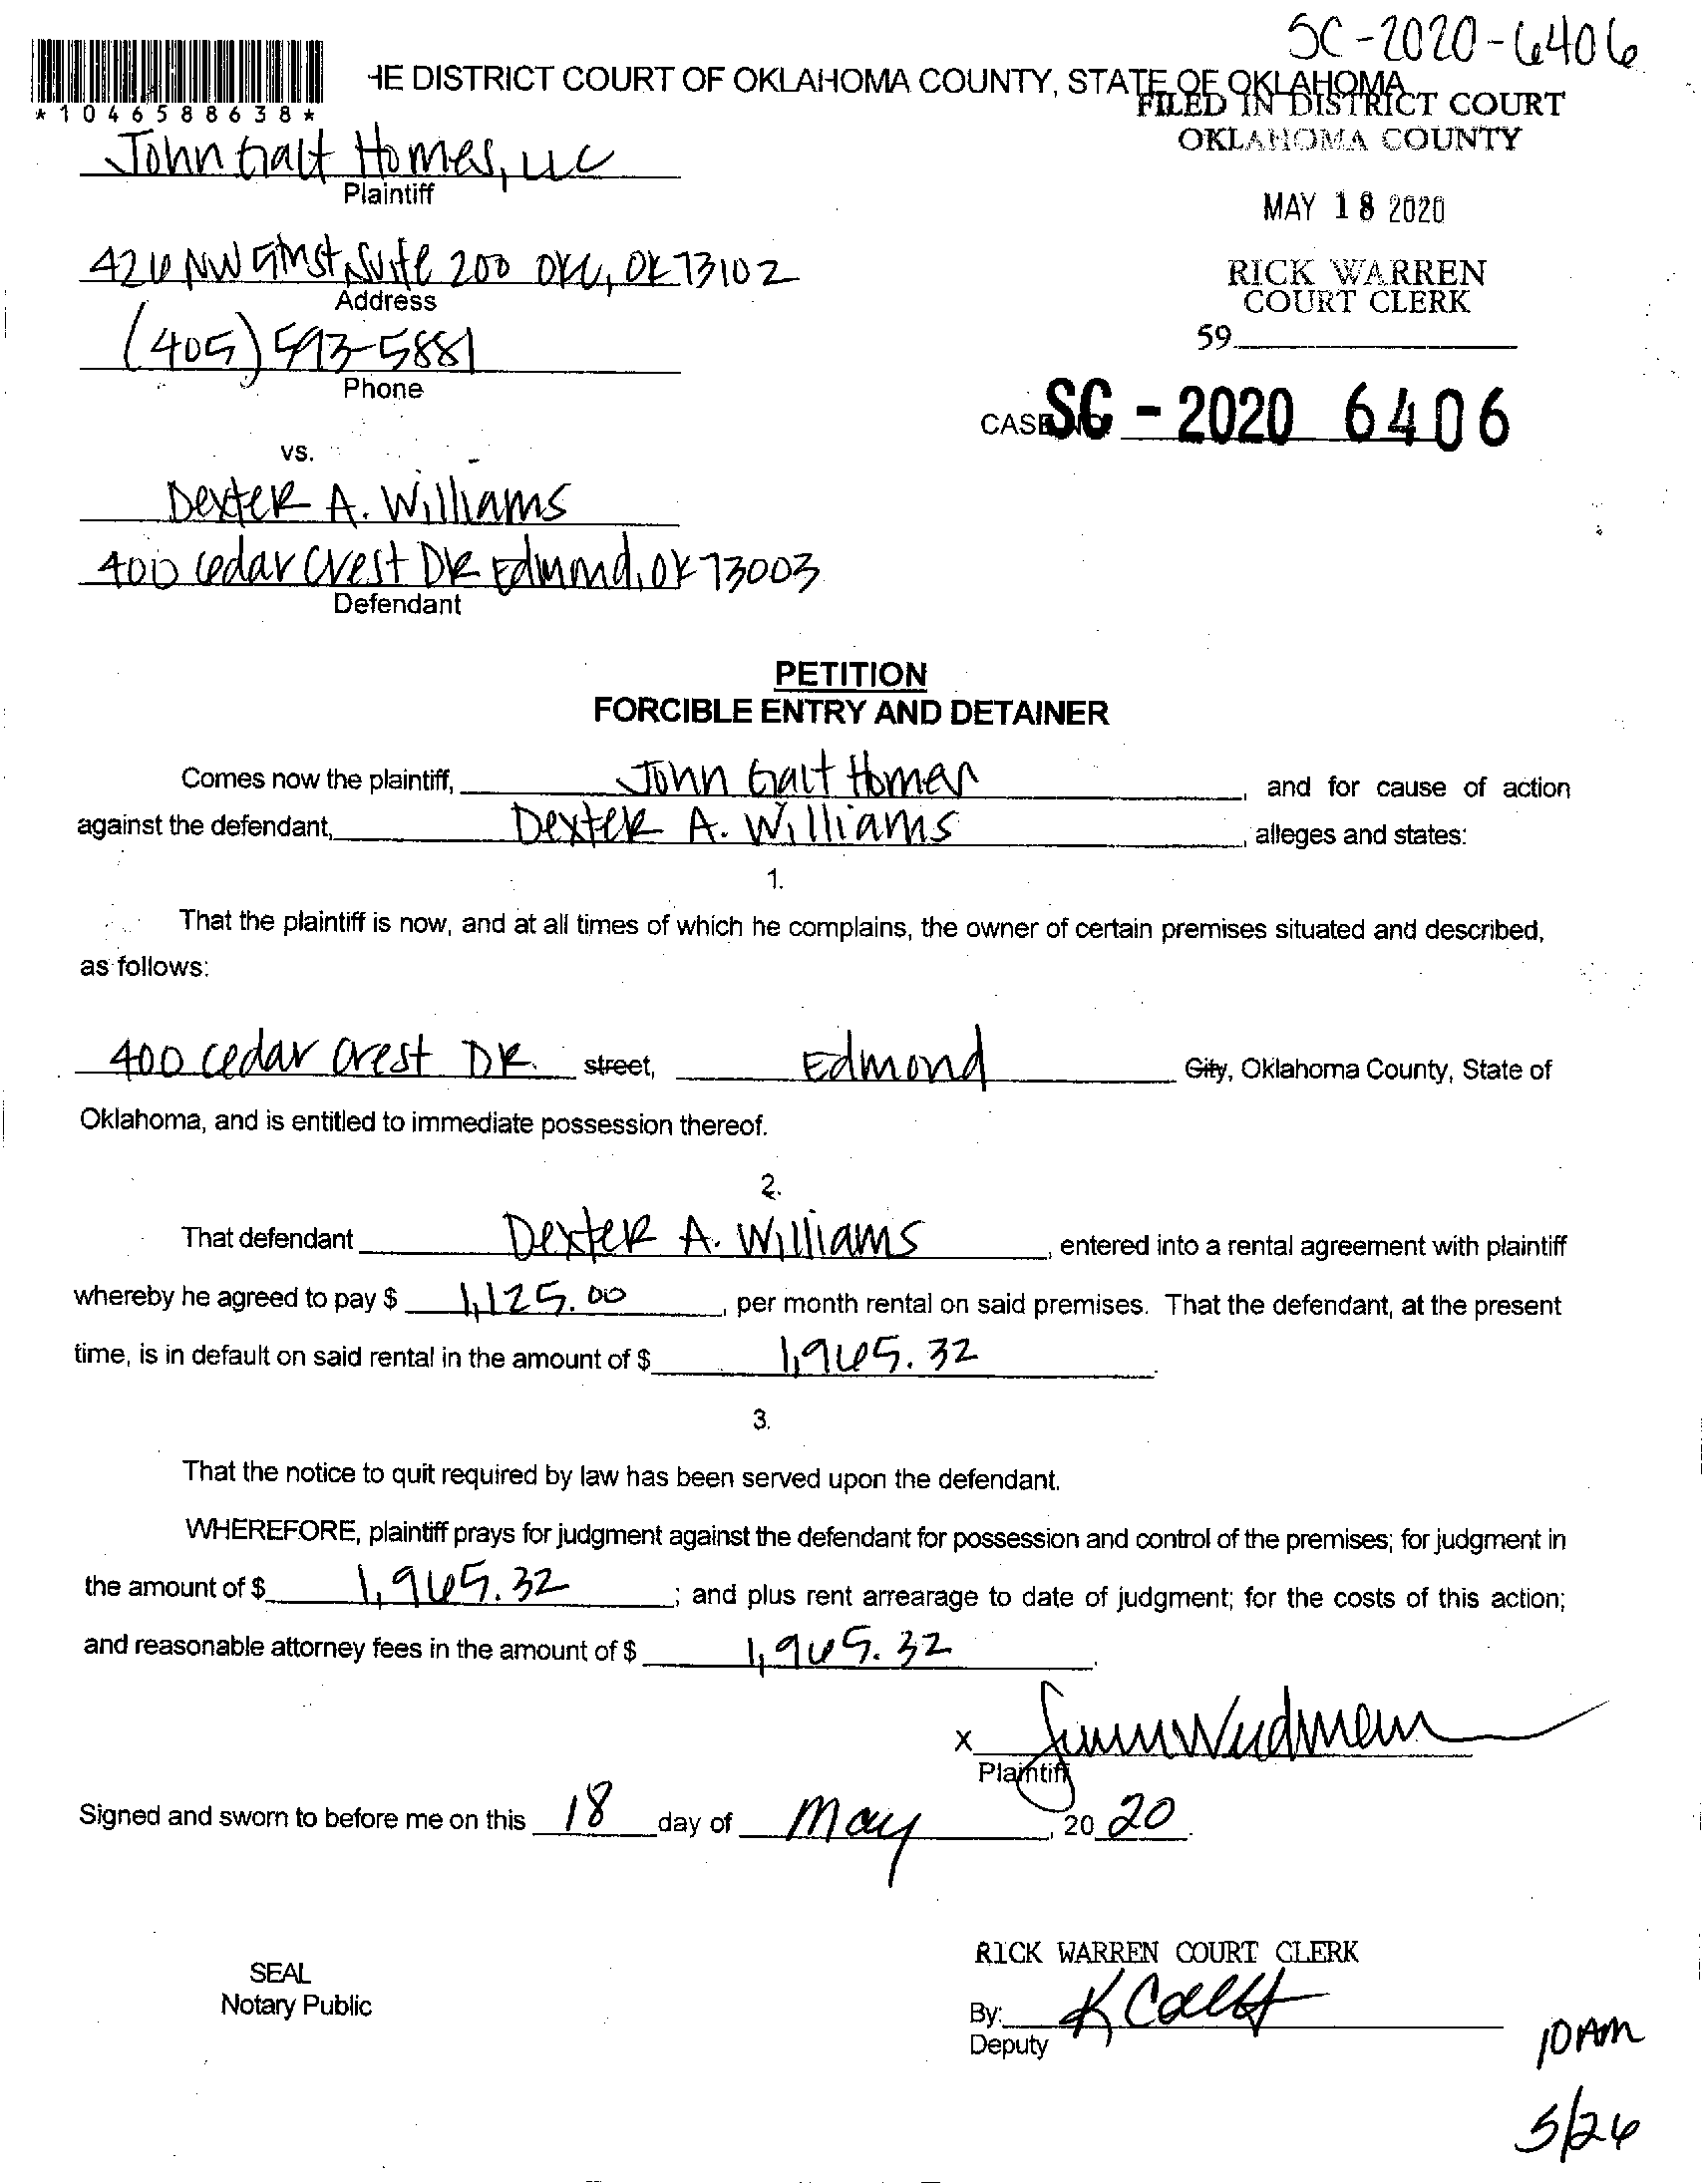 SC-2020-6406
HE DISTRICT COURT OF OKLAHOMA COUNTY, STATE OF OKLAHOMA
FILED IN DISTRICT COURT
OKLAHOMA COUNTY
*1046588638*
John Galt Homes, LLC
Plaintiff
MAY 18 2020
426 NW 5th St Suite 200 OKC, OK 73102
Address
RICK WARREN
COURT CLERK
59
(405) 593-5881
Phone
CASE NO. SC - 2020 6406
vs.
Dexter A. Williams
400 Cedar Crest DR Edmond, OK 73003
Defendant
PETITION
FORCIBLE ENTRY AND DETAINER
Comes now the plaintiff, John Galt Homes, and for cause of action
against the defendant, Dexter A. Williams, alleges and states:
1.
That the plaintiff is now, and at all times of which he complains, the owner of certain premises situated and described,
as follows:
400 Cedar Crest DR. street, Edmond City, Oklahoma County, State of
Oklahoma, and is entitled to immediate possession thereof.
2.
That defendant Dexter A. Williams, entered into a rental agreement with plaintiff
whereby he agreed to pay $ 1,125.00, per month rental on said premises. That the defendant, at the present
time, is in default on said rental in the amount of $ 1,965.32.
3.
That the notice to quit required by law has been served upon the defendant.
WHEREFORE, plaintiff prays for judgment against the defendant for possession and control of the premises; for judgment in
the amount of $ 1,965.32; and plus rent arrearage to date of judgment; for the costs of this action;
and reasonable attorney fees in the amount of $ 1,965.32.
X
Plaintiff
Signed and sworn to before me on this 18 day of May, 2020.
RICK WARREN COURT CLERK
SEAL
Notary Public
By:
Deputy
10AM
5/26